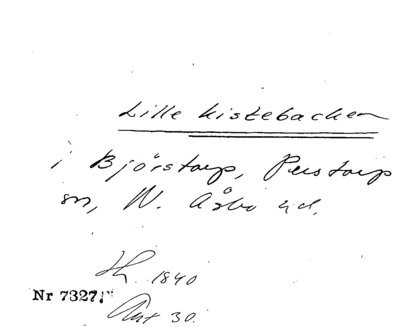 Lille Kistebacken
i Björstorp, Perstorp
sn, N. Åsbo hd.
1840
Nr 7327
30.